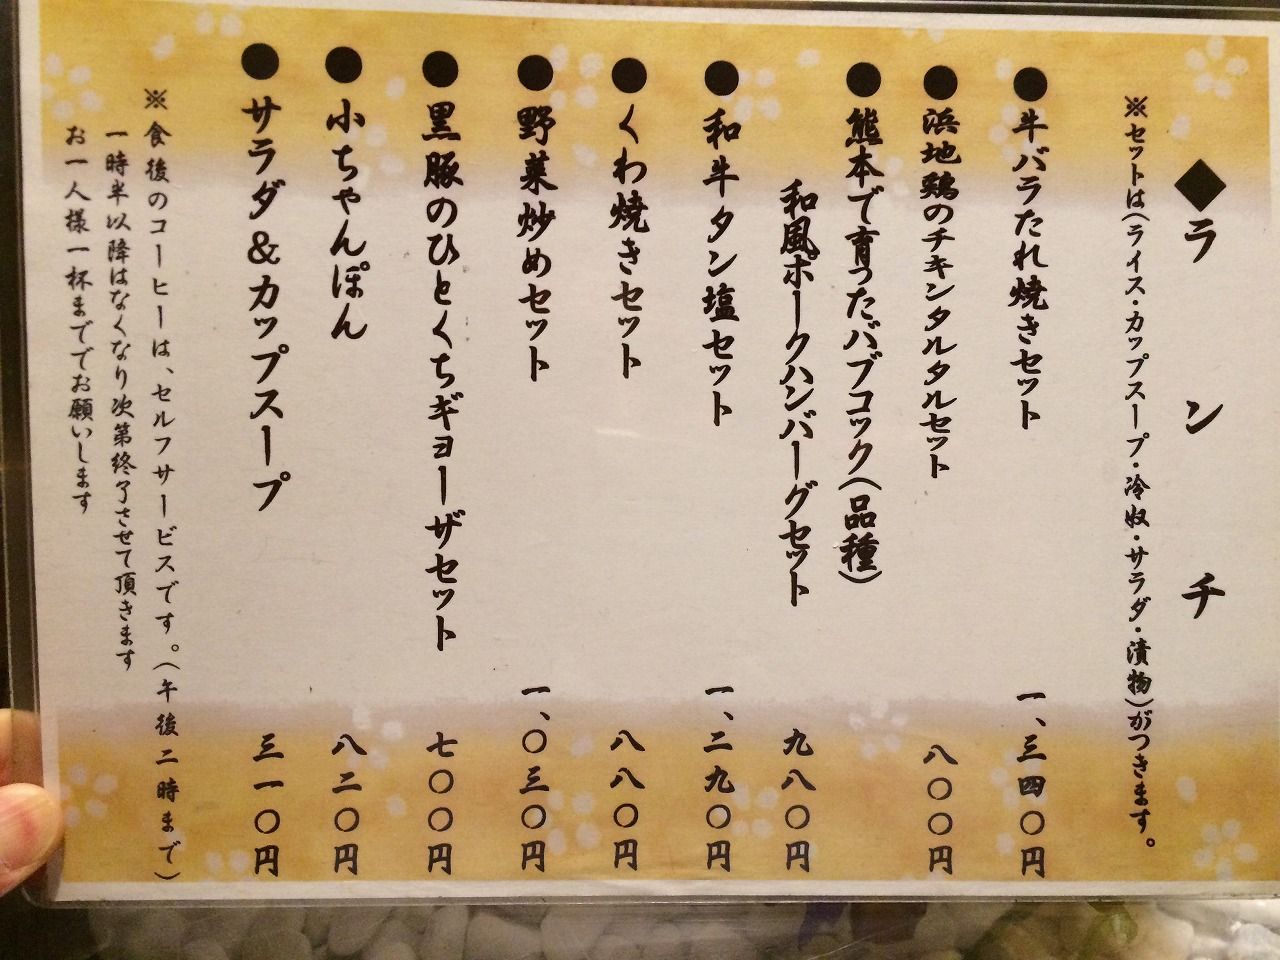 ◆ランチ
※セットは(ライス・カップスープ・冷奴・サラダ・漬物)がつきます。
●牛バラたれ焼きセット 一、三四〇円
●浜地鶏のチキンタルタルセット 八〇〇円
●熊本で育ったバブコック(品種)
和風ポークハンバーグセット 九八〇円
●和牛タン塩セット 一、二九〇円
●くわ焼きセット 八八〇円
●野菜炒めセット 一、〇三〇円
●黒豚のひとくちギョーザセット 七〇〇円
●小ちゃんぽん 八二〇円
●サラダ&カップスープ 三一〇円
※食後のコーヒーは、セルフサービスです。(午後二時まで)
一時半以降はなくなり次第終了させて頂きます
お一人様一杯まででお願いします